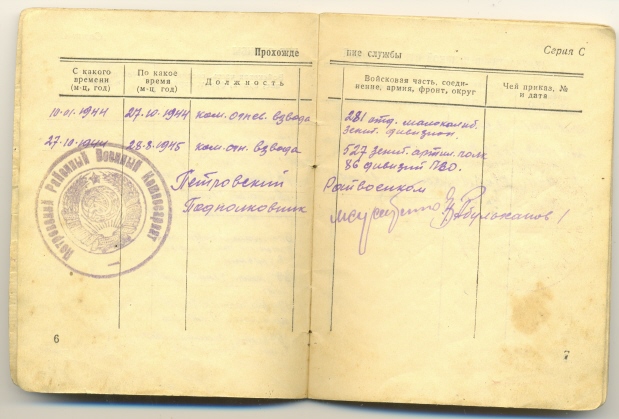 Прохожде
ние службы
Серия С
С какого времени (м-ц, год)
По какое время (м-ц, год)
Должность
Войсковая часть, соеди-
нение, армия, фронт, округ
Чей приказ, №
и дата
10-01-1944 27.10.1944 ком. огнев. взвода
281 отд. малокалиб.
зенит. дивизион.
27.10.1944 28.8.1945 ком. огн. взвода
527 зенит. артил. полк
86 дивизий ПВО.
Петровский
Райвоенком
Подполковник
Петровский Районный Военный Комиссариат
6
7